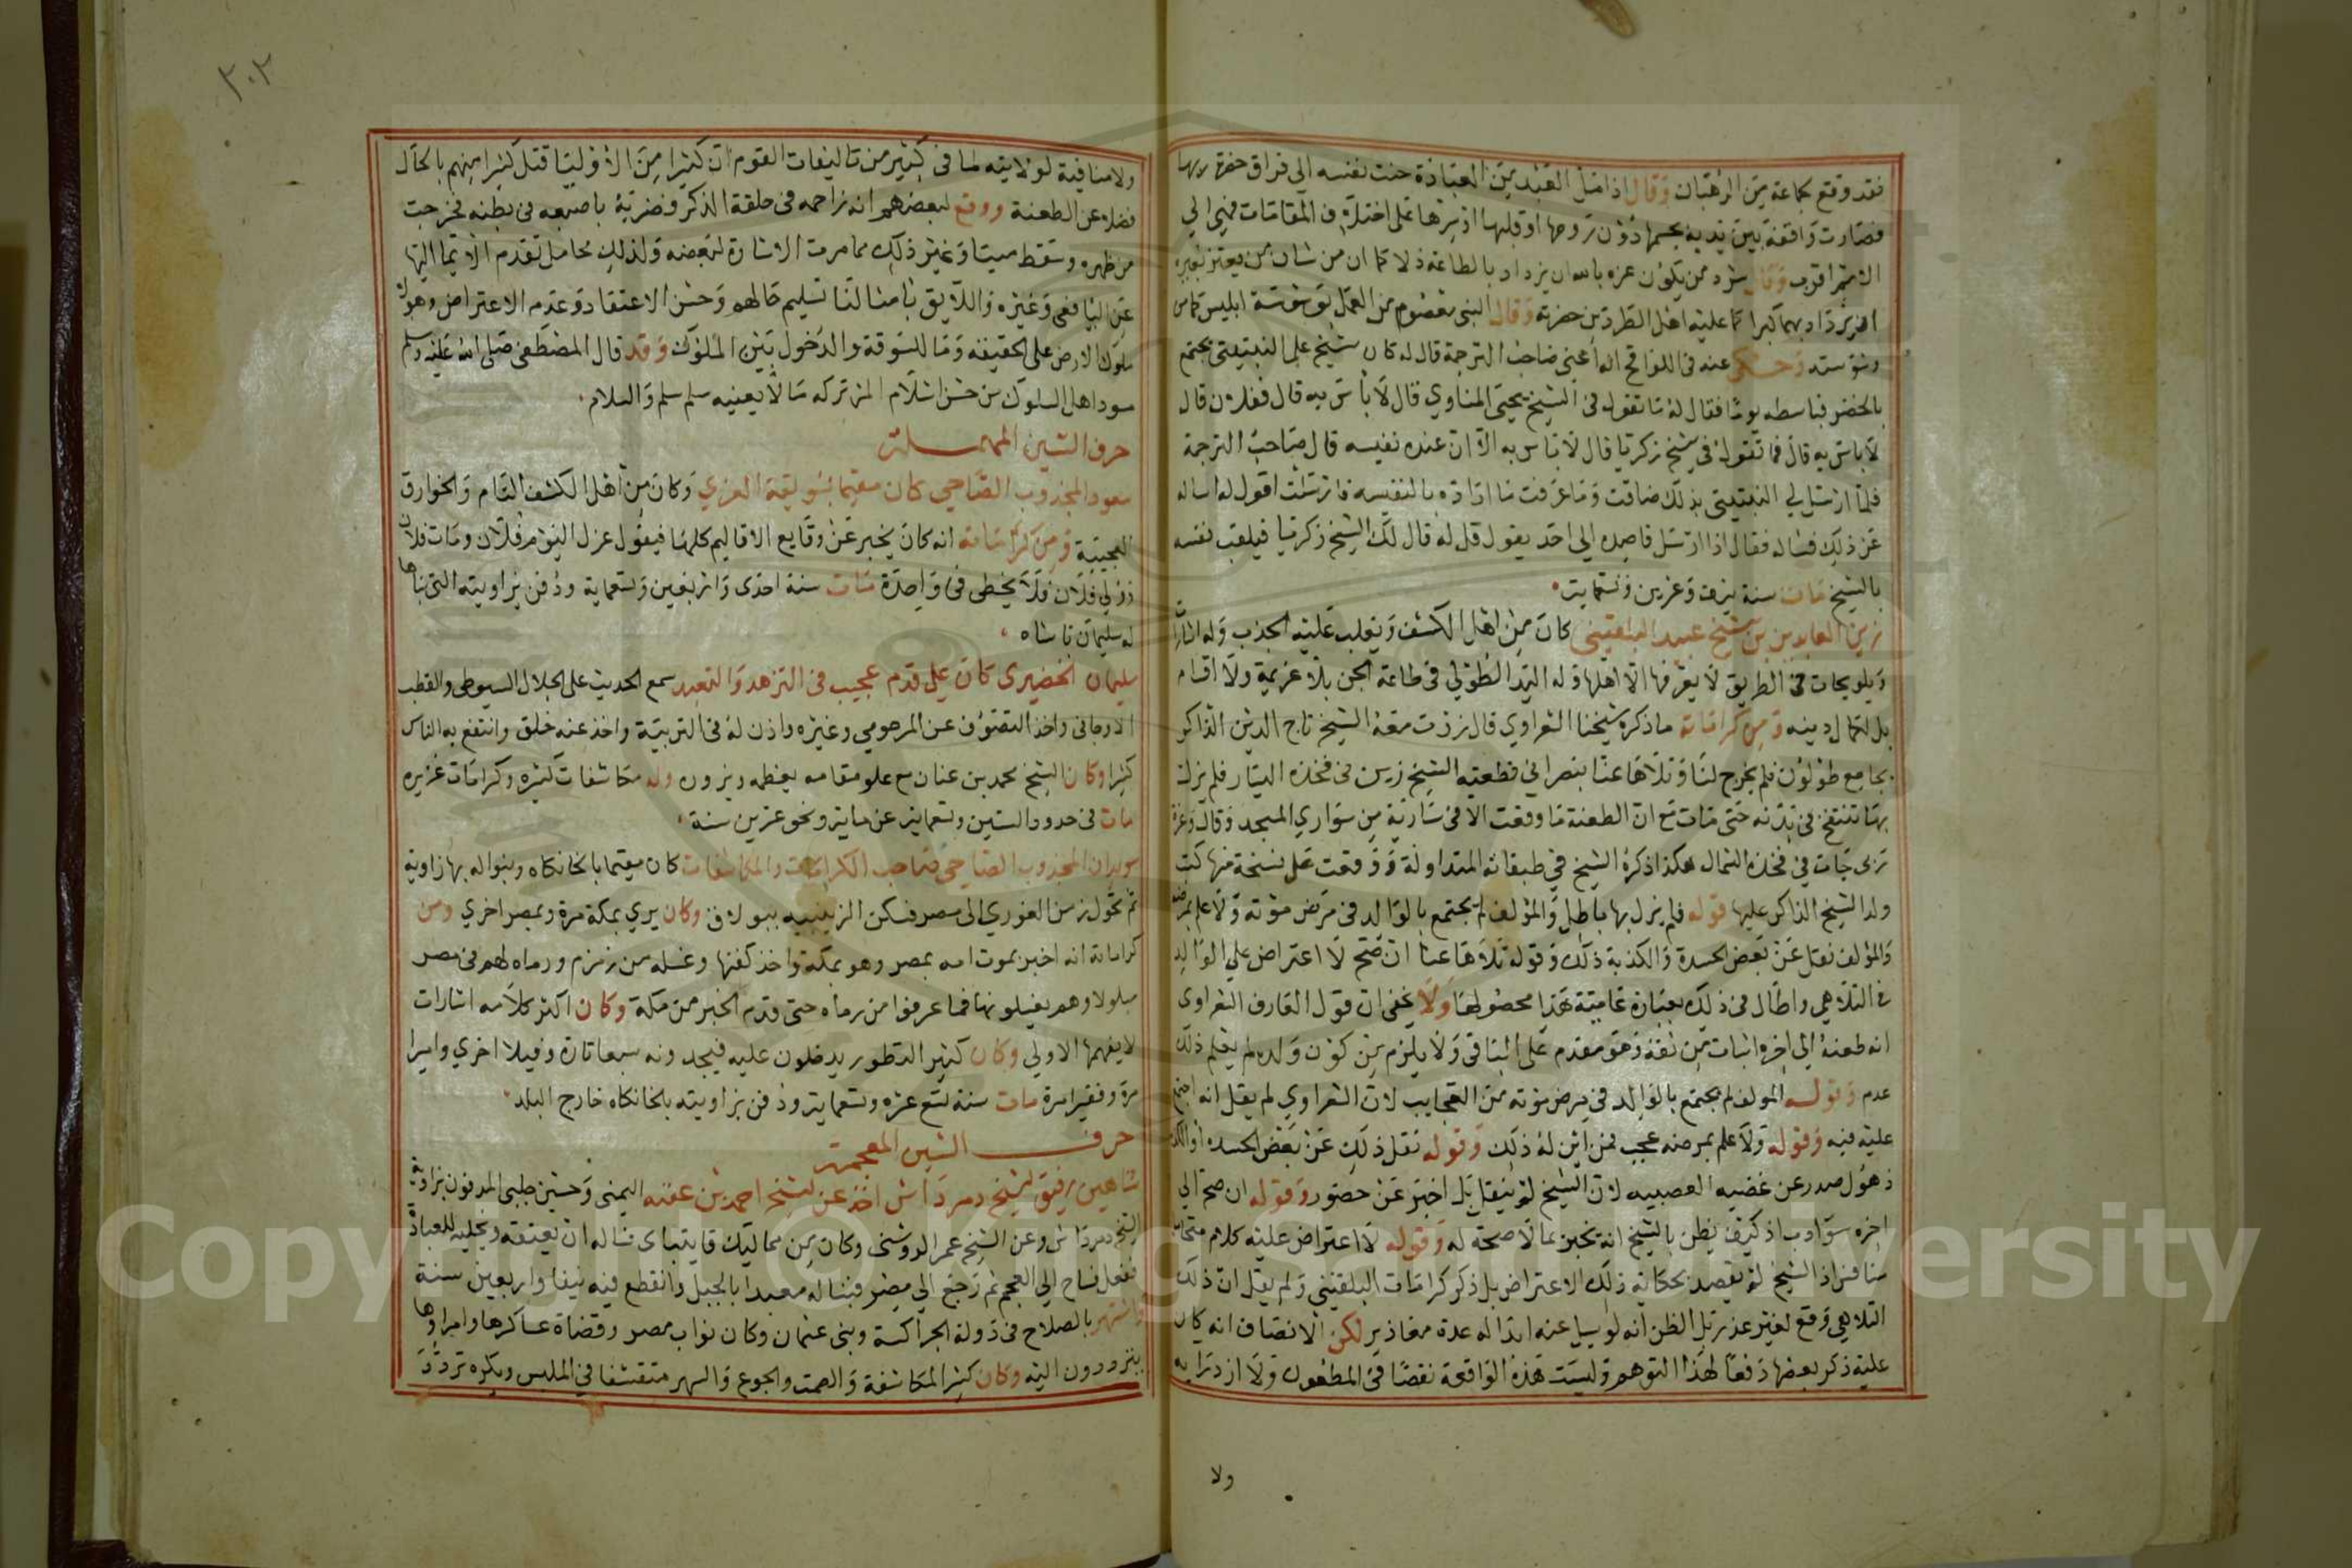 فقد وقع لجماعة من الرهبان وقال اذا مثل العبد من العبادة حنت نفسه الي فراق حضرة ربها
فصارت واقفة بين يديه بجسمها دون روحها او قلبها
الاسم اقرب وقال من يكون عزه بالله ان يزداد بالطاعة ذلا كما ان من شان من يعتز بغيره
وقال النبي معصوم من العمل بوسوسة ابليس
وحكي عنه في اللواقح انه اعني صاحب الترجمة قال له كان شيخ علي النبتيتي يجتمع
بالخضر فباسطه يوما فقال له ما تقول في الشيخ يحيى المناوي قال لا باس به قال ففلان قال
لا باس به قال فما تقول في شيخ زكريا قال لا باس به الا ان عنده نفيسه قال صاحب الترجمة
فلما ارسل لي النبتيتي بذلك ضاقت وما عرفت ما اراده بالنفيسه فارسلت اقول له اساله
عن ذلك فساله فقال اذا ارسل قاصده الي احد يقول قل له قال لك الشيخ زكريا فيلقب نفسه
بالشيخ مات سنة نيف وعشرين وتسعماية
زين العابدين بن شيخ عبيد البلقيني كان من اهل الكشف ويغلب عليه الجذب وله اشارات
وتلويحات في الطريق لا يعرفها الا اهلها وله اليد الطولي في طاعة الجن بلا عزيمة ولا اقسام
بل لكمال دينه ومن كراماته ما ذكره شيخنا الشعراوي قال زرت معه الشيخ تاج الدين الذاكر
بجامع طولون فلم يخرج لنا وتلاها عنا بنصراني فطعنه الشيخ زين في فخذه اليسار فلم يزل
بها تنتفخ في بدنه حتى مات مع ان الطعنة ما وقعت الا في سارية من سواري المسجد وقال وعزة
ربي جات في فخذه الشمال هكذا ذكره الشيخ في طبقاته المتداولة ووقعت على نسخة منها كتب
ولد الشيخ الذاكر عليها قوله فلم يزل بها باطل والمؤلف لم يجتمع بالوالد في مرض موته ولا علم بمرضه
والمؤلف نقل عن بعض الحسدة والكذبة ذلك وقوله تلاها عنا ان صح لا اعتراض علي الوالد
في التلاهي واطال في ذلك بعبارة عامية هذا محصولها ولا يخفى ان قول العارف الشعراوي
انه طعنه الي اخره اثبات من ثقة وهو مقدم على النافي ولا يلزم من كون ولده لم يعلم ذلك
عدم وقوله المولف لم يجتمع بالوالد في مرض موته من العجايب لان الشعراوي لم يقل انه اجتمع
عليه فيه وقوله ولا علم بمرضه عجب فمن اين له ذلك وقوله نقل ذلك عن بعض الحسده
ذهول صدر عن غضبه العصبيه لان الشيخ لم ينقل بل اخبر عن حضور وقوله ان صح الي
اخره سو ادب اذ كيف يظن بالشيخ انه يخبر بما لا صحة له وقوله لا اعتراض عليه كلام
اذ الشيخ لم يقصد بحكاية ذلك الاعتراض بل ذكر كرامات البلقيني ولم يقل ان ذلك
التلاهي وقع لغير عذر بل الظن انه لو سيل عنه ابدا له عدة معاذير لكن الانصاف انه كان
عليه ذكر بعضها دفعا لهذا التوهم وليست هذه الواقعة نقصا في المطعون ولا ازدرا به
ولا
٣٠٢
ولا منافية لولايته لما في كثير من تاليفات القوم ان كثيرا من الاوليا قتل كثيرا منهم بالحال
فضلا عن الطعنة ووقع لبعضهم انه زاحمه في حلقة الذكر فضربه باصبعه في بطنه فخرجت
من ظهره وسقط ميتا وغير ذلك مما مرت الاشارة لبعضه ولذلك محامل تقدم الايما اليها
عن اليافعي وغيره واللايق بامثالنا تسليم حالهم وحسن الاعتقاد وعدم الاعتراض وهولا
ملوك الارض على الحقيقة وما للسوقة والدخول بين الملوك وقد قال المصطفى صلى الله عليه وسلم
سود اهل السلوك من حسن اسلام المر تركه ما لا يعنيه سلم سلم والسلام
حرف السين المهملة
سعود المجذوب الصاحي كان مقيما بسويقة العزي وكان من اهل الكشف التام والخوارق
العجيبة ومن كراماته انه كان يخبر عن وقايع الاقاليم كلها فيقول عزل اليوم فلان ومات فلان
وولي فلان فلا يخطى في واحدة مات سنة احدى واربعين وتسعماية ودفن بزاويته التي بناها
له سليمان باشاه
سليمان الخضيري كان علي قدم عجيب في التزهد والتعبد سمع الحديث على الجلال السيوطي والقطب
الاوجاني واخذ التصوف عن المرحومي وغيره واذن له في التربية واخذ عنه خلق وانتفع به الناس
كثيرا وكان الشيخ محمد بن عنان مع علو مقامه يعظمه ويزوره وله مكاشفات كثيره وكرامات غزيره
مات في حدود الستين وتسعماية عن ماية ونحو عشرين سنة
سويدان المجذوب الصاحي صاحب الكرامات والمكاشفات كان مقيما بالخانكاه وبنوا له بها زاوية
ثم تحول زمن الغوري الى مصر فسكن الزينبيه ببولاق وكان يري بمكة مرة وبمصر اخري ومن
كراماته انه اخبر بموت امه بمصر وهو بمكة واخذ كفنها وغسله من زمزم ورماه لهم في مصر
مبلولا وهم يغسلونها فما عرفوا من رماه حتى قدم الخبر من مكة وكان اكثر كلامه اشارات
لا يفهمها الا ولي وكان كثير التطور يدخلون عليه فيجدونه سبعا تارة وفيلا اخري واميرا
مرة وفقيرا مرة مات سنة تسع عشره وتسعماية ودفن بزاويته بالخانكاه خارج البلد
حرف الشين المعجمة
شاهين رفيق الشيخ دمرداش اخذ عن الشيخ احمد بن عقبه اليمني وحسين جلبي المدفون بزاوية
الشيخ دمرداش وعن الشيخ عمر الروشني وكان من مماليك قايتباى فساله ان يعتقه ويخليه للعبادة
ففعل فساح الي العجم ثم رجع الي مصر فبنا له معبدا بالجبل وانقطع فيه نيفا واربعين سنة
واشتهر بالصلاح في دولة الجراكسة وبني عثمان وكان نواب مصر وقضاة عساكرها وامراوها
يترددون اليه وكان كثير المكاشفة والصمت والجوع والسهر متقشفا في الملبس ويكره تردد
Copyright © King Saud University